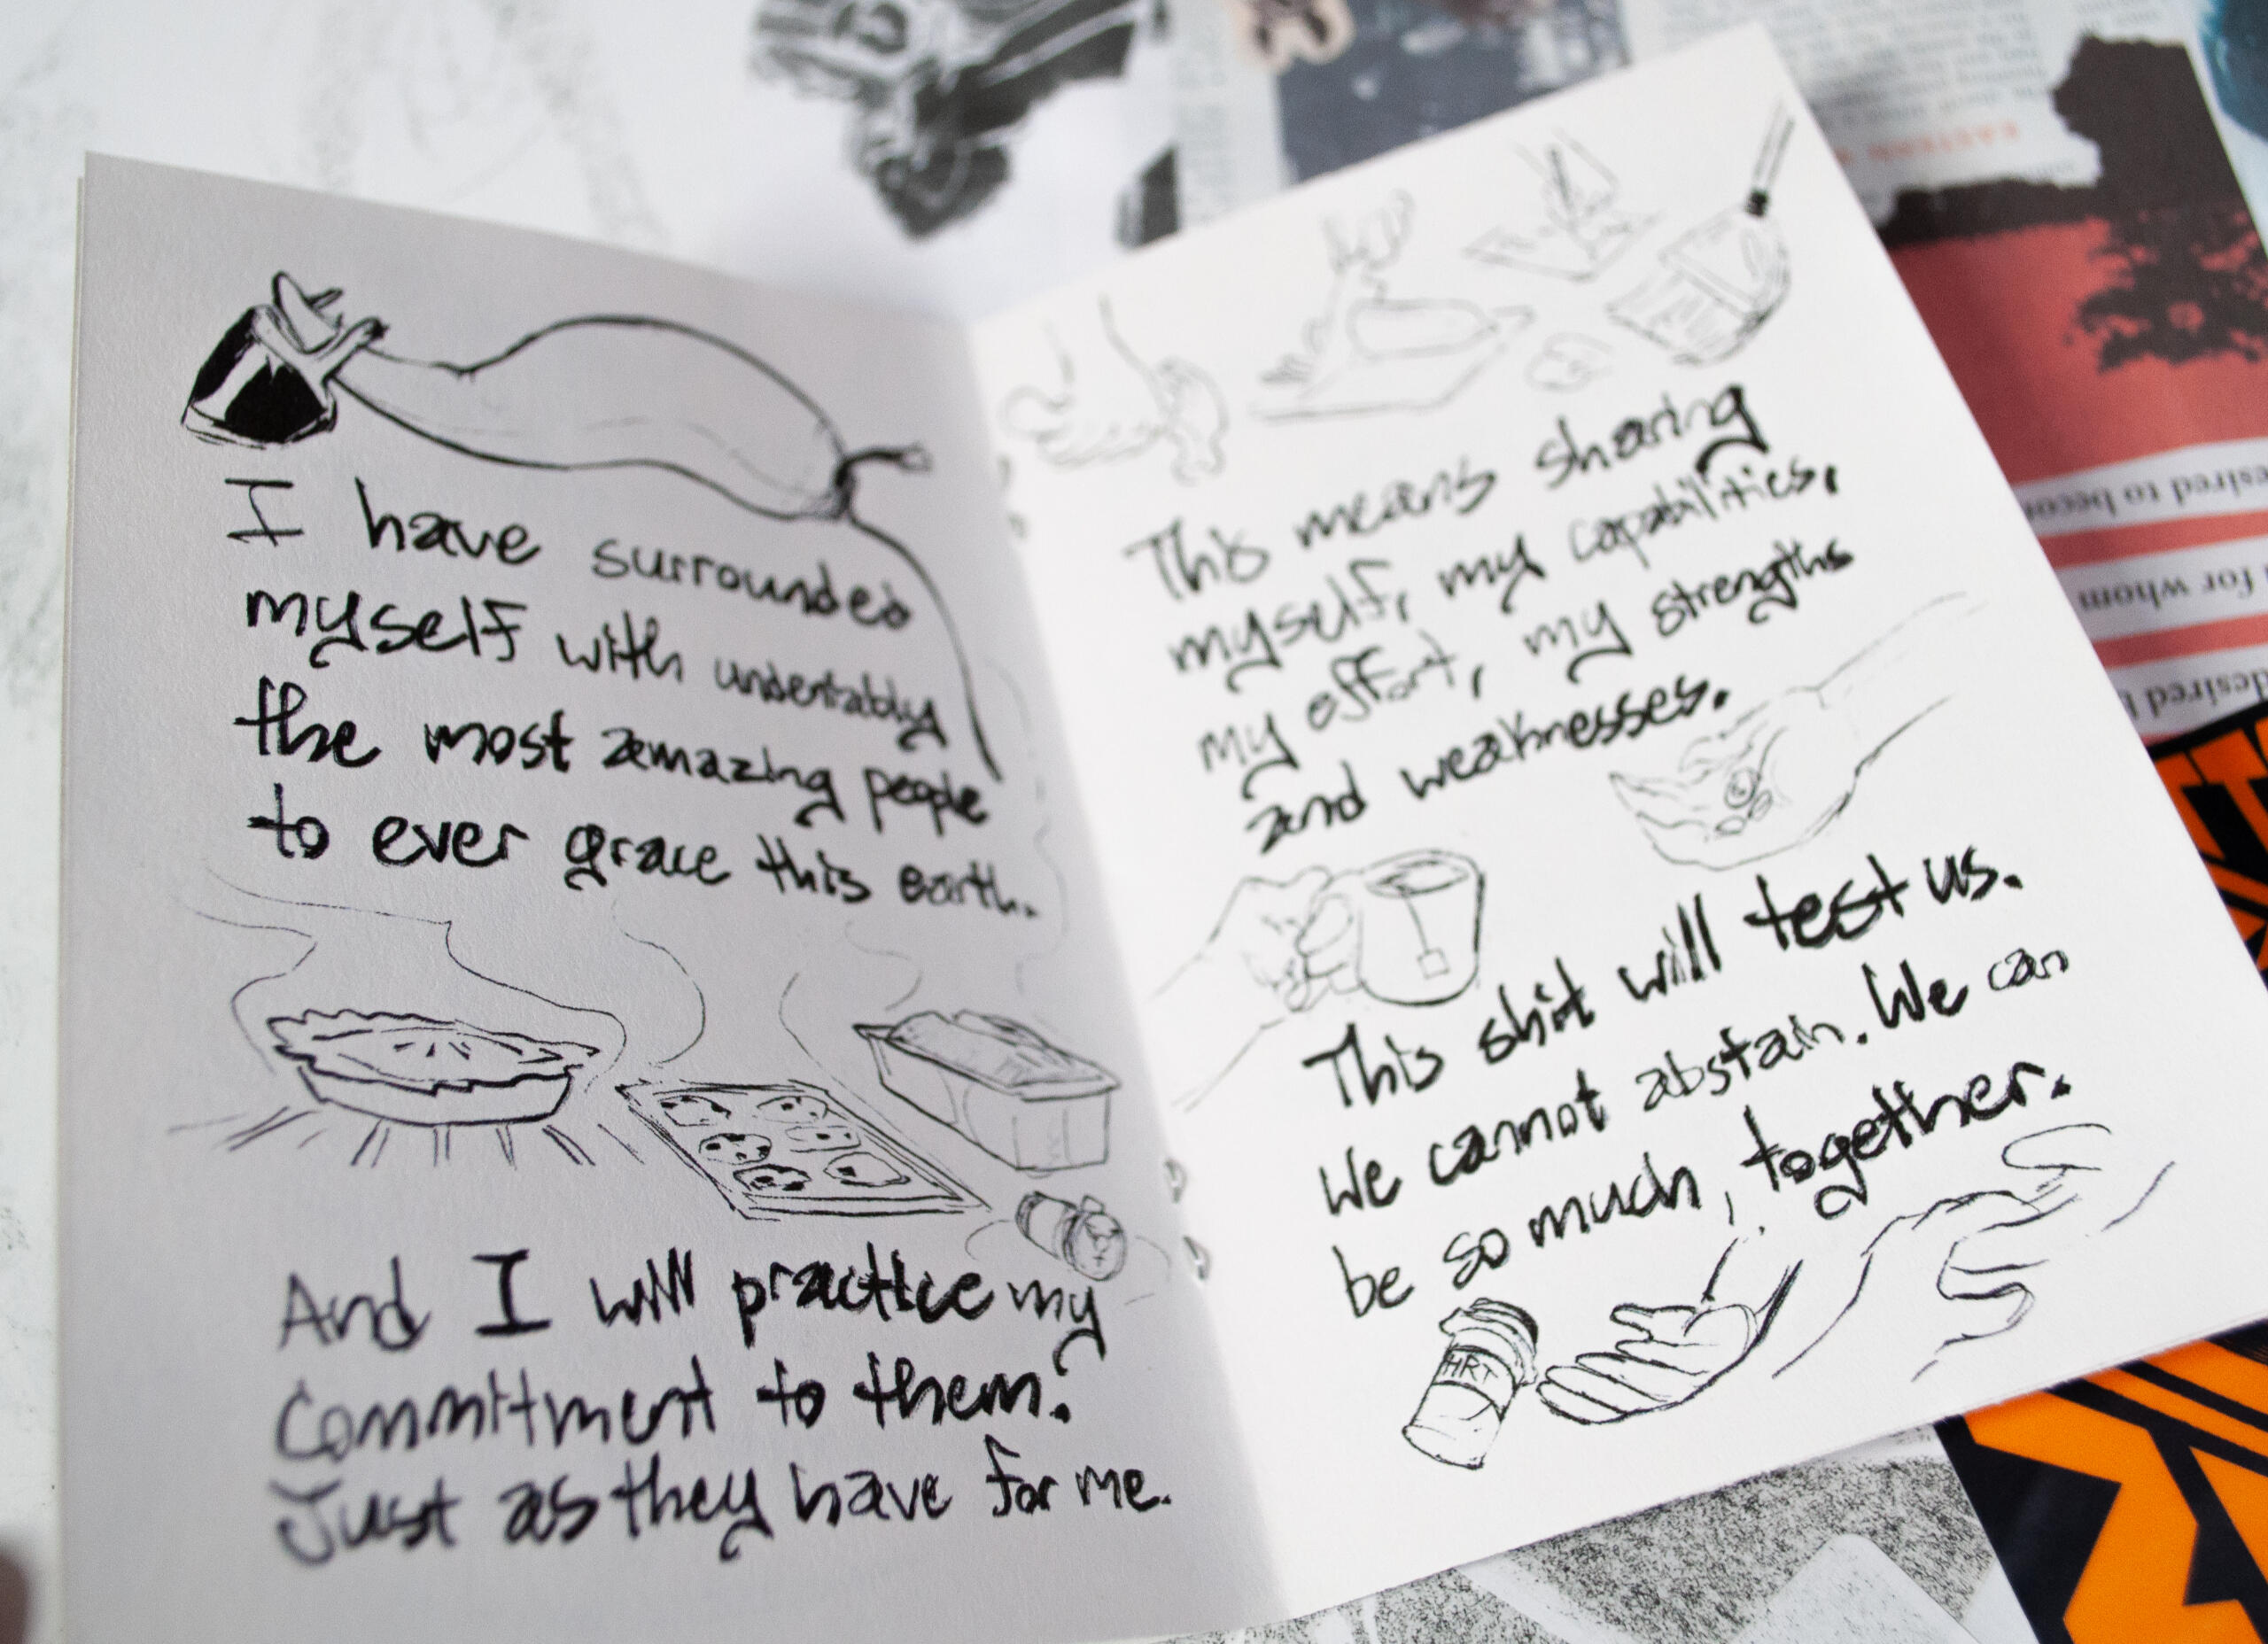 I have surrounded
myself with undeniably
the most amazing people
to ever grace this earth.
And I will practice my
Commitment to them.
Just as they have for me.
This means sharing
myself, my capabilities,
my effort, my strengths
and weaknesses.
This shit will test us.
We cannot abstain. We can
be so much, together.
HRT
EASTERN
esired to becom
for whom
desired